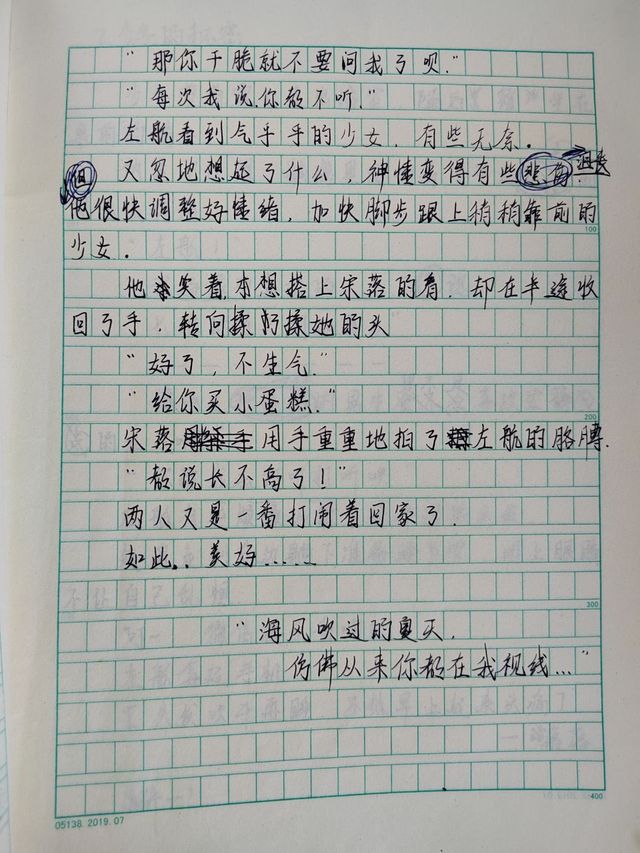 “那你干脆就不要问我了呗.”
“每次我说.你都不听.”
左航看到气乎乎的少女，有些无奈.
但又忽地想延了什么，神情变得有些 沮丧.
他很快调整好情绪，加快脚步跟上稍稍靠前的
100
少女.
他笑着，本想搭上宋落的肩，却在半途收
回了手，转向揉了揉她的头
“好了，不生气.”
“给你买小蛋糕.”
200
宋落用手重重地拍了左航的胳膊.
“都说长不高了！”
两人又是一番打闹着回家了.
如此..美好......
300
“海风吹过的夏天，
仿佛从来你都在我视线...”
400
05138. 2019. 07